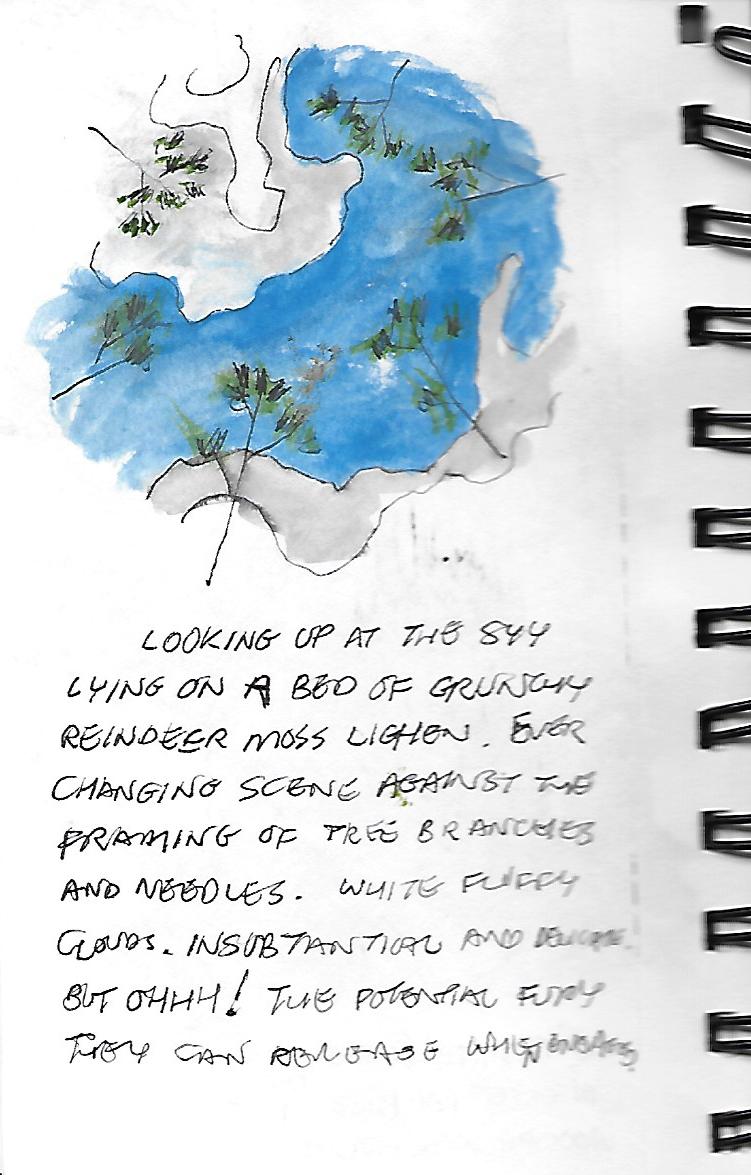 LOOKING UP AT THE SKY
LYING ON A BED OF CRUNCHY
REINDEER MOSS LICHEN. EVER
CHANGING SCENE AGAINST THE
FRAMING OF TREE BRANCHES
AND NEEDLES. WHITE FLUFFY
CLOUDS. INSUBTANTICAL AND DELICATE.
BUT OHHH! THE POTENTIAL FURY
THEY CAN RELEASE WHEN